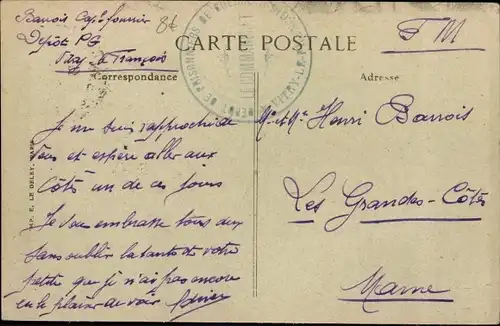 Barrois Cap. fourrier
Dépôt PG
Vitry-le-François
F M
CARTE POSTALE
Correspondance
Adresse
DEPOT DE PRISONNIERS DE
LE COMMANDANT
Je me suis rapproché de
vous et espère aller aux
Côtes un de ces jours
Je vous embrasse tous deux
sans oublier la tante et votre
petite que je n'ai pas encore
eu le plaisir de voir
Mr et Me Henri Barrois
Les Grandes-Côtes
Marne
IMP. E. LE DELEY, PARIS